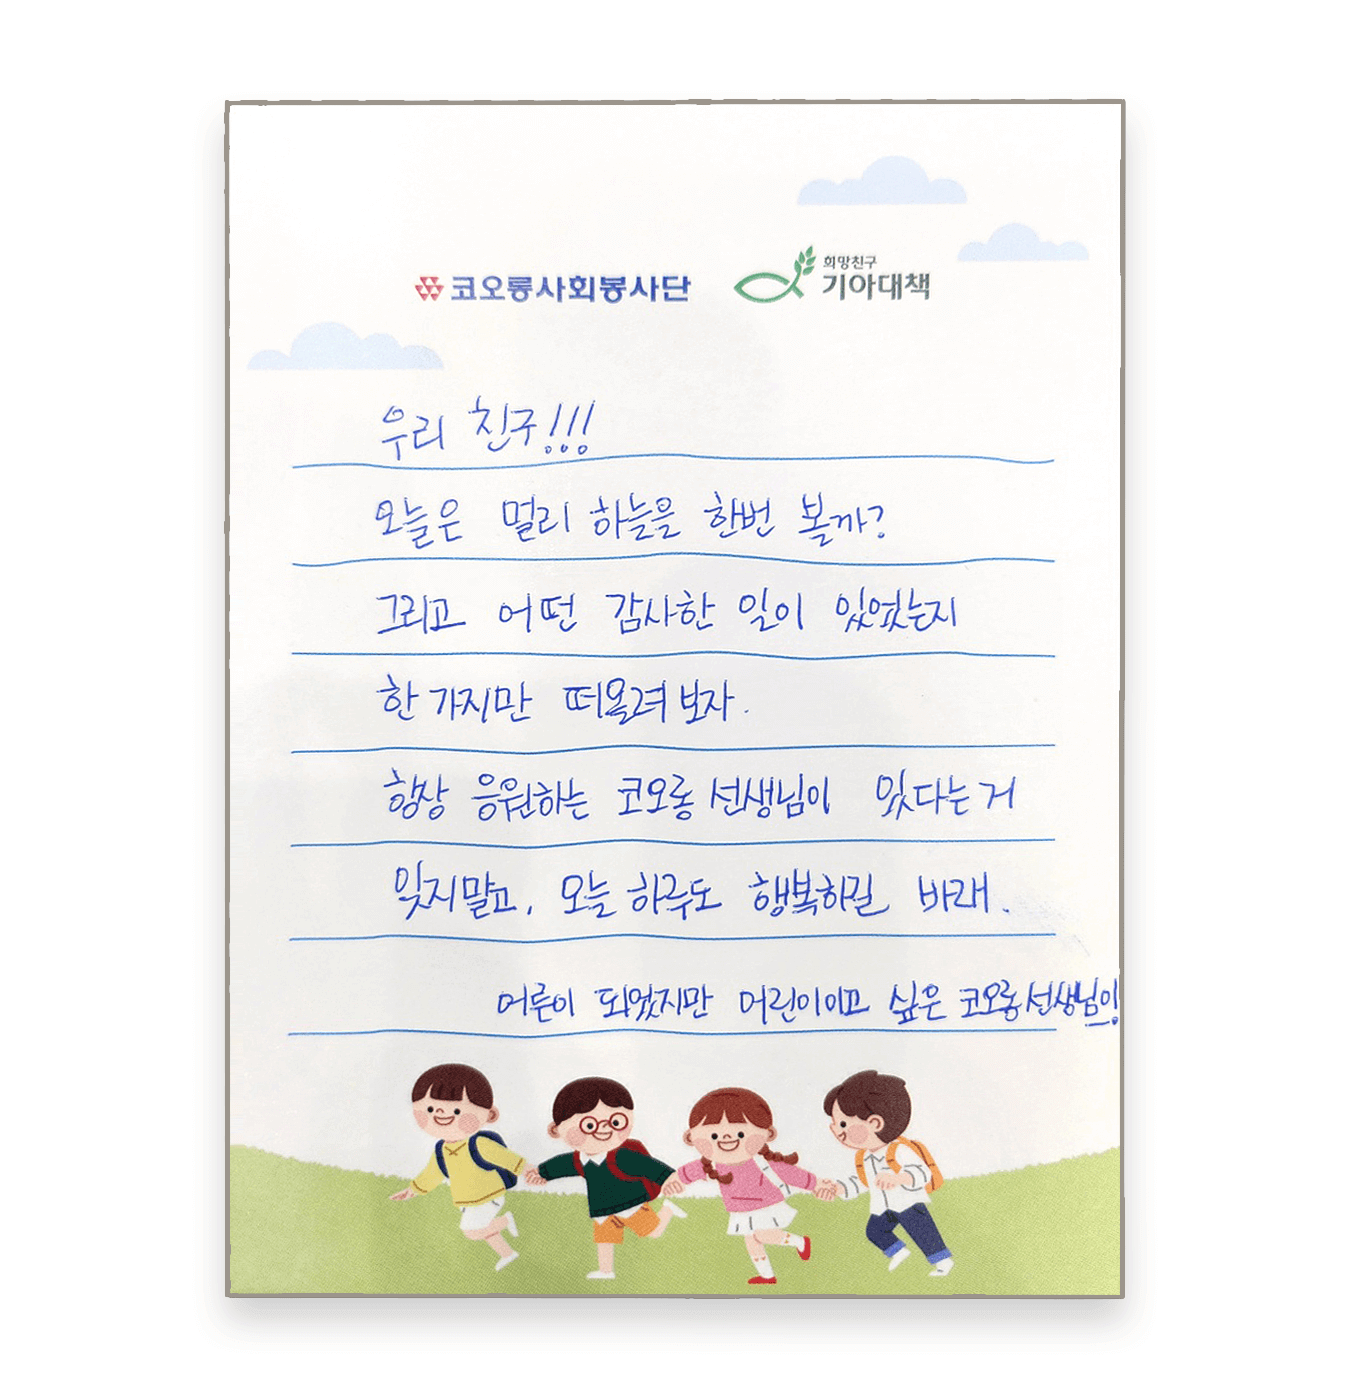 코오롱사회봉사단
희망친구
기아대책
우리 친구!!!
오늘은 멀리 하늘을 한번 볼까?
그리고 어떤 감사한 일이 있었는지
한 가지만 떠올려 보자.
항상 응원하는 코오롱 선생님이 있다는 거
잊지말고, 오늘 하루도 행복하길 바래.
어른이 되었지만 어린이이고 싶은 코오롱선생님이!